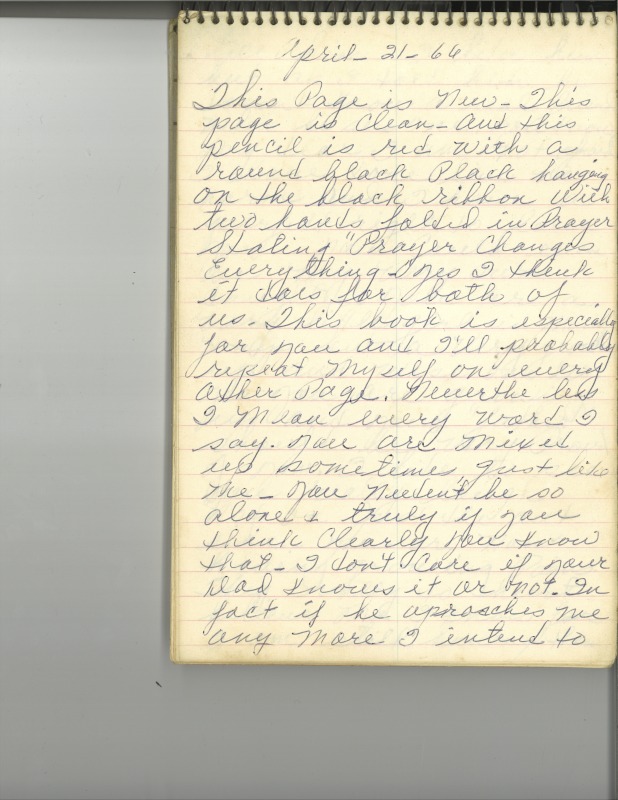 April - 21 - 66
This Page is New - This
page is clean - And this
pencil is red with a
round black Plack hanging
on the black ribbon with
two hands folded in Prayer
Stating "Prayer Changes
Everything - Yes I think
it does for both of
us. This book is especially
for you and I'll probably
repeat myself on every
other Page. Neverthe less
I Mean every word I
say. You are Mixed
up sometimes, just like
me - You Needen't be so
alone & truly if you
think Clearly you know
that - I don't Care if your
Dad knows it or not. In
fact if he aproaches me
any More I intend to